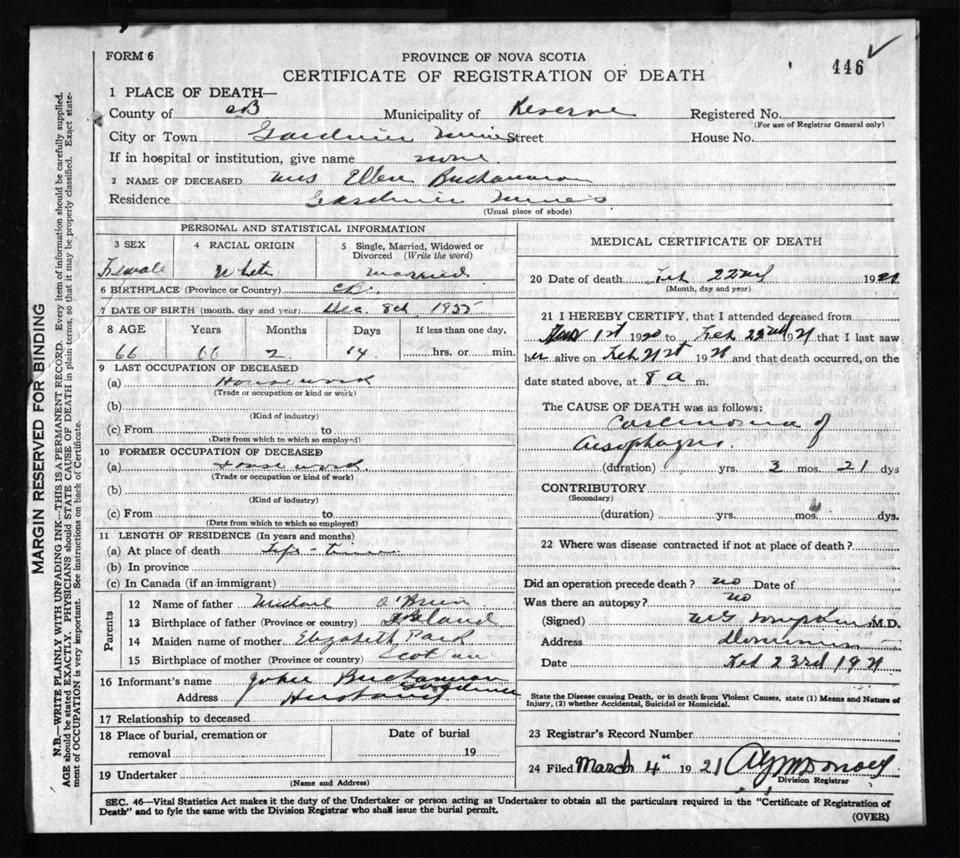 FORM 6
PROVINCE OF NOVA SCOTIA
446
CERTIFICATE OF REGISTRATION OF DEATH
1 PLACE OF DEATH—
County of CB Municipality of Reserve Registered No.
(For use of Registrar General only)
City or Town Gardiner Mines Street House No.
If in hospital or institution, give name none
2 NAME OF DECEASED Mrs Ellen Buchannan
Residence Gardiner Mines
(Usual place of abode)
PERSONAL AND STATISTICAL INFORMATION
3 SEX 4 RACIAL ORIGIN 5 Single, Married, Widowed or Divorced (Write the word)
Female White Married
6 BIRTHPLACE (Province or Country) CB.
7 DATE OF BIRTH (month, day and year) Dec. 8th, 1955
8 AGE Years Months Days If less than one day,
66 66 2 14 hrs. or min.
9 LAST OCCUPATION OF DECEASED
(a) Housework
(Trade or occupation or kind or work)
(b)
(Kind of industry)
(c) From to
(Date from which to which so employed)
10 FORMER OCCUPATION OF DECEASED
(a) Housework.
(Trade or occupation or kind of work)
(b)
(Kind of industry)
(c) From to
(Date from which to which so employed)
11 LENGTH OF RESIDENCE (In years and months)
(a) At place of death Life-time
(b) In province
(c) In Canada (if an immigrant)
Parents
12 Name of father Michael O'Brien
13 Birthplace of father (Province or country) Ireland
14 Maiden name of mother Elizabeth
15 Birthplace of mother (Province or country) Scotland
16 Informant's name John Buchannan
Address Gardiner
Husband
17 Relationship to deceased
18 Place of burial, cremation or removal Date of burial
19
19 Undertaker
(Name and Address)
MEDICAL CERTIFICATE OF DEATH
20 Date of death Feb 22nd 1921
(Month, day and year)
21 I HEREBY CERTIFY, that I attended deceased from
1st 1920 to Feb 22nd 1921 that I last saw
her alive on Feb 21st 1921 and that death occurred, on the
date stated above, at 8 a m.
The CAUSE OF DEATH was as follows:
Carcinoma of
Aesophagus.
(duration) yrs. 3 mos. 21 dys
CONTRIBUTORY
(Secondary)
(duration) yrs. mos. dys.
22 Where was disease contracted if not at place of death?
Did an operation precede death? no Date of
Was there an autopsy? no
(Signed) M.D.
Address Dominion
Date Feb 23rd 1921
State the Disease causing Death, or in death from Violent Causes, state (1) Means and Nature of
Injury, (2) whether Accidental, Suicidal or Homicidal.
23 Registrar's Record Number
24 Filed March 4th 1921 McDonald
Division Registrar
SEC. 46—Vital Statistics Act makes it the duty of the Undertaker or person acting as Undertaker to obtain all the particulars required in the "Certificate of Registration of
Death" and to fyle the same with the Division Registrar who shall issue the burial permit.
(OVER)
MARGIN RESERVED FOR BINDING
N.B.—WRITE PLAINLY WITH UNFADING INK—THIS IS A PERMANENT RECORD. Every item of information should be carefully supplied.
AGE should be stated EXACTLY. PHYSICIANS should STATE CAUSE OF DEATH in plain terms, so that it may be properly classified. Exact state-
ment of OCCUPATION is very important. See instructions on back of Certificate.